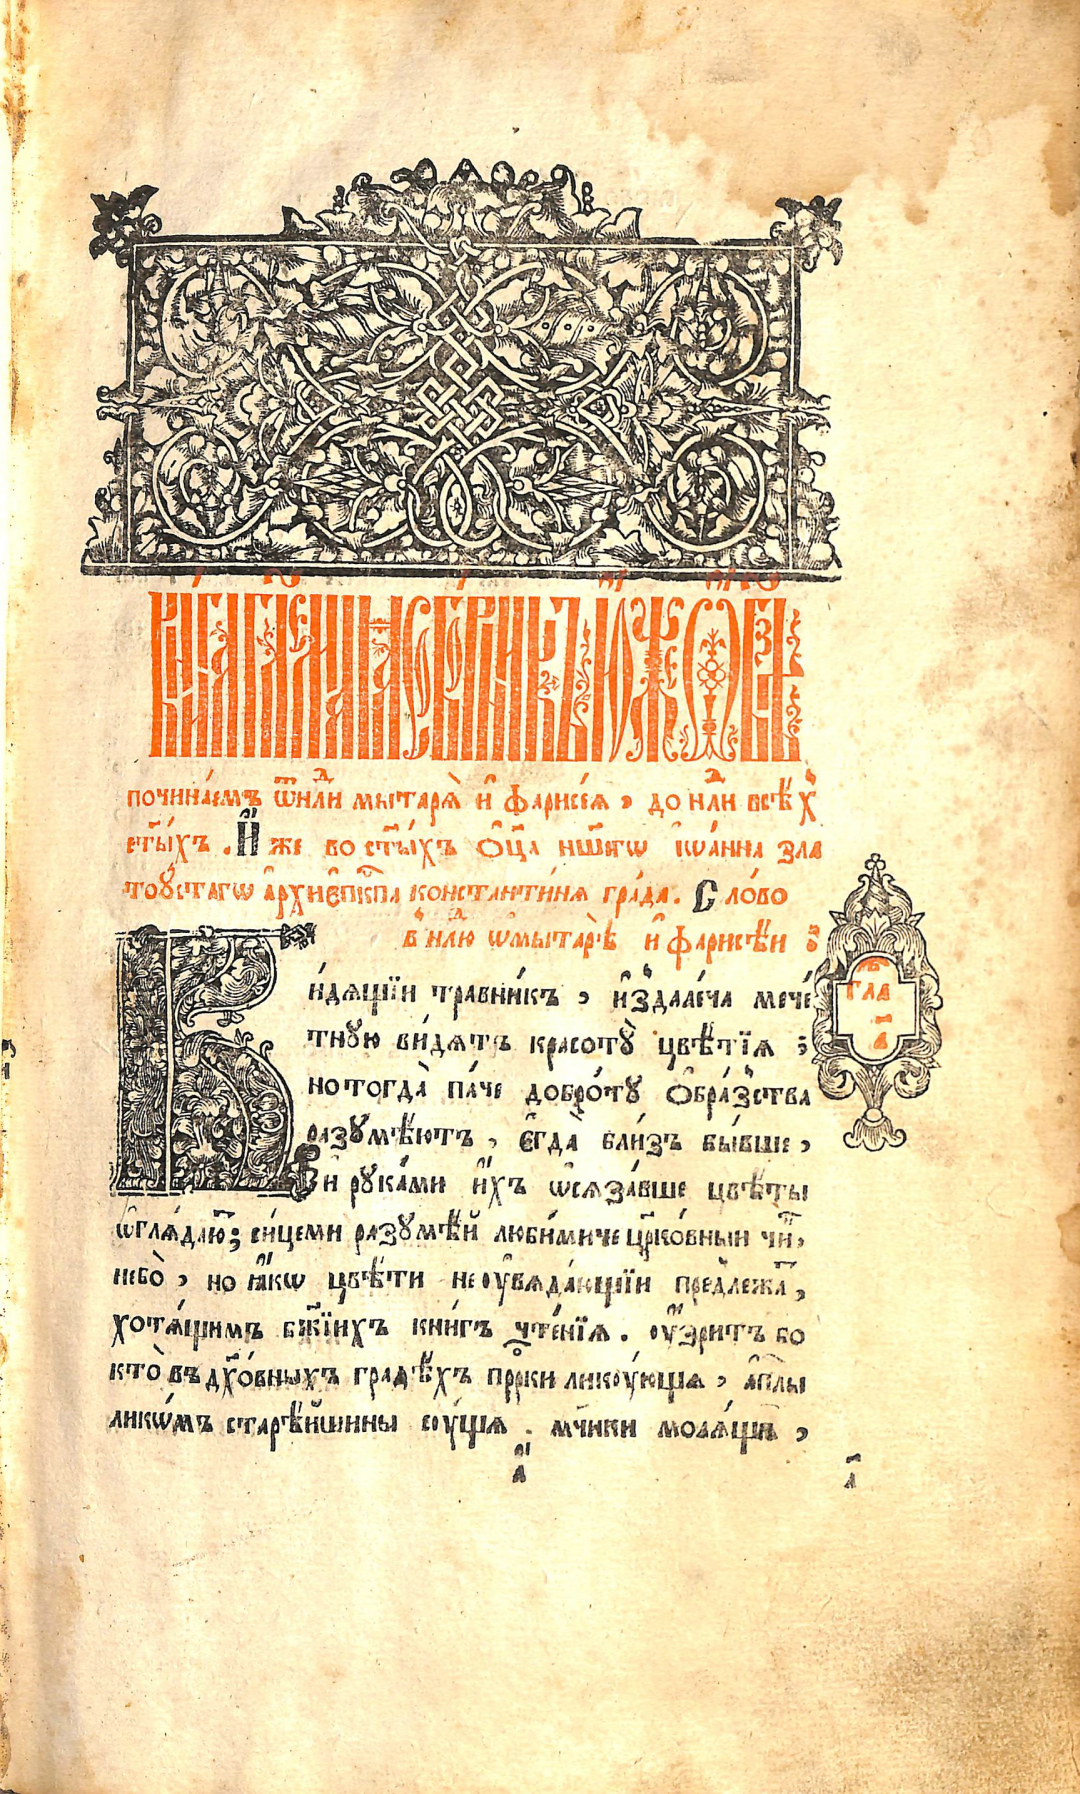 КНИГА ГЛЕМАѦ СБОРНИКЪ И҆́ЖЕ Ѡ҆ БЗѢ
починáемъ ѿнⷣли мытарѧ̀ и҆ фарисе́ѧ, до нⷣли всѣ́хъ
ст҃ы́хъ. И҆́же во ст҃ы́хъ ѻ҆ц҃а̀ нш҃егѡ і҆ѡа́нна зла
тоꙋ́стагѡ а҆рхїе҆пⷭ҇кпа константи́нѧ гра́да. Сло́во
в̾ нⷣлю ѡ҆ мытарѣ̀ и҆ фарисѣ́и :
гла
а҃
Ви́дѧщїи травни́къ, и҆здале́ча мече́
тную ви́дѧтъ красотꙋ̀ цвѣ́тїѧ ;
но тогда̀ па́че добро́тꙋ ѻ҆бра́зства
разꙋмѣ́ютъ, є҆гда̀ бли́зъ бы́вше,
и рꙋка́ми и҆́хъ ѡ҆сѧза́вше цвѣ́ты
ѡ҆глѧ́даютъ; си́цеми разꙋмѣ́й люби́миче цр҃ко́вныи чи́нъ,
небо̀, но ꙗ҆́кѡ цвѣ́ти не оу҆вѧда́ющїи предлежа́тъ,
хотѧ́щимъ бж҃їихъ кни́гъ чте́нїѧ. оу҆́зритъ бо
кто̀ въ дх҃о́вныхъ градѣ́хъ прⷪ҇ки ликꙋ́ющѧ, а҆пⷭ҇лы
ликѡ́мъ старѣ́йшины сꙋ́щѧ. мч҃ики молѧ́щѧ,
а҃
а҃